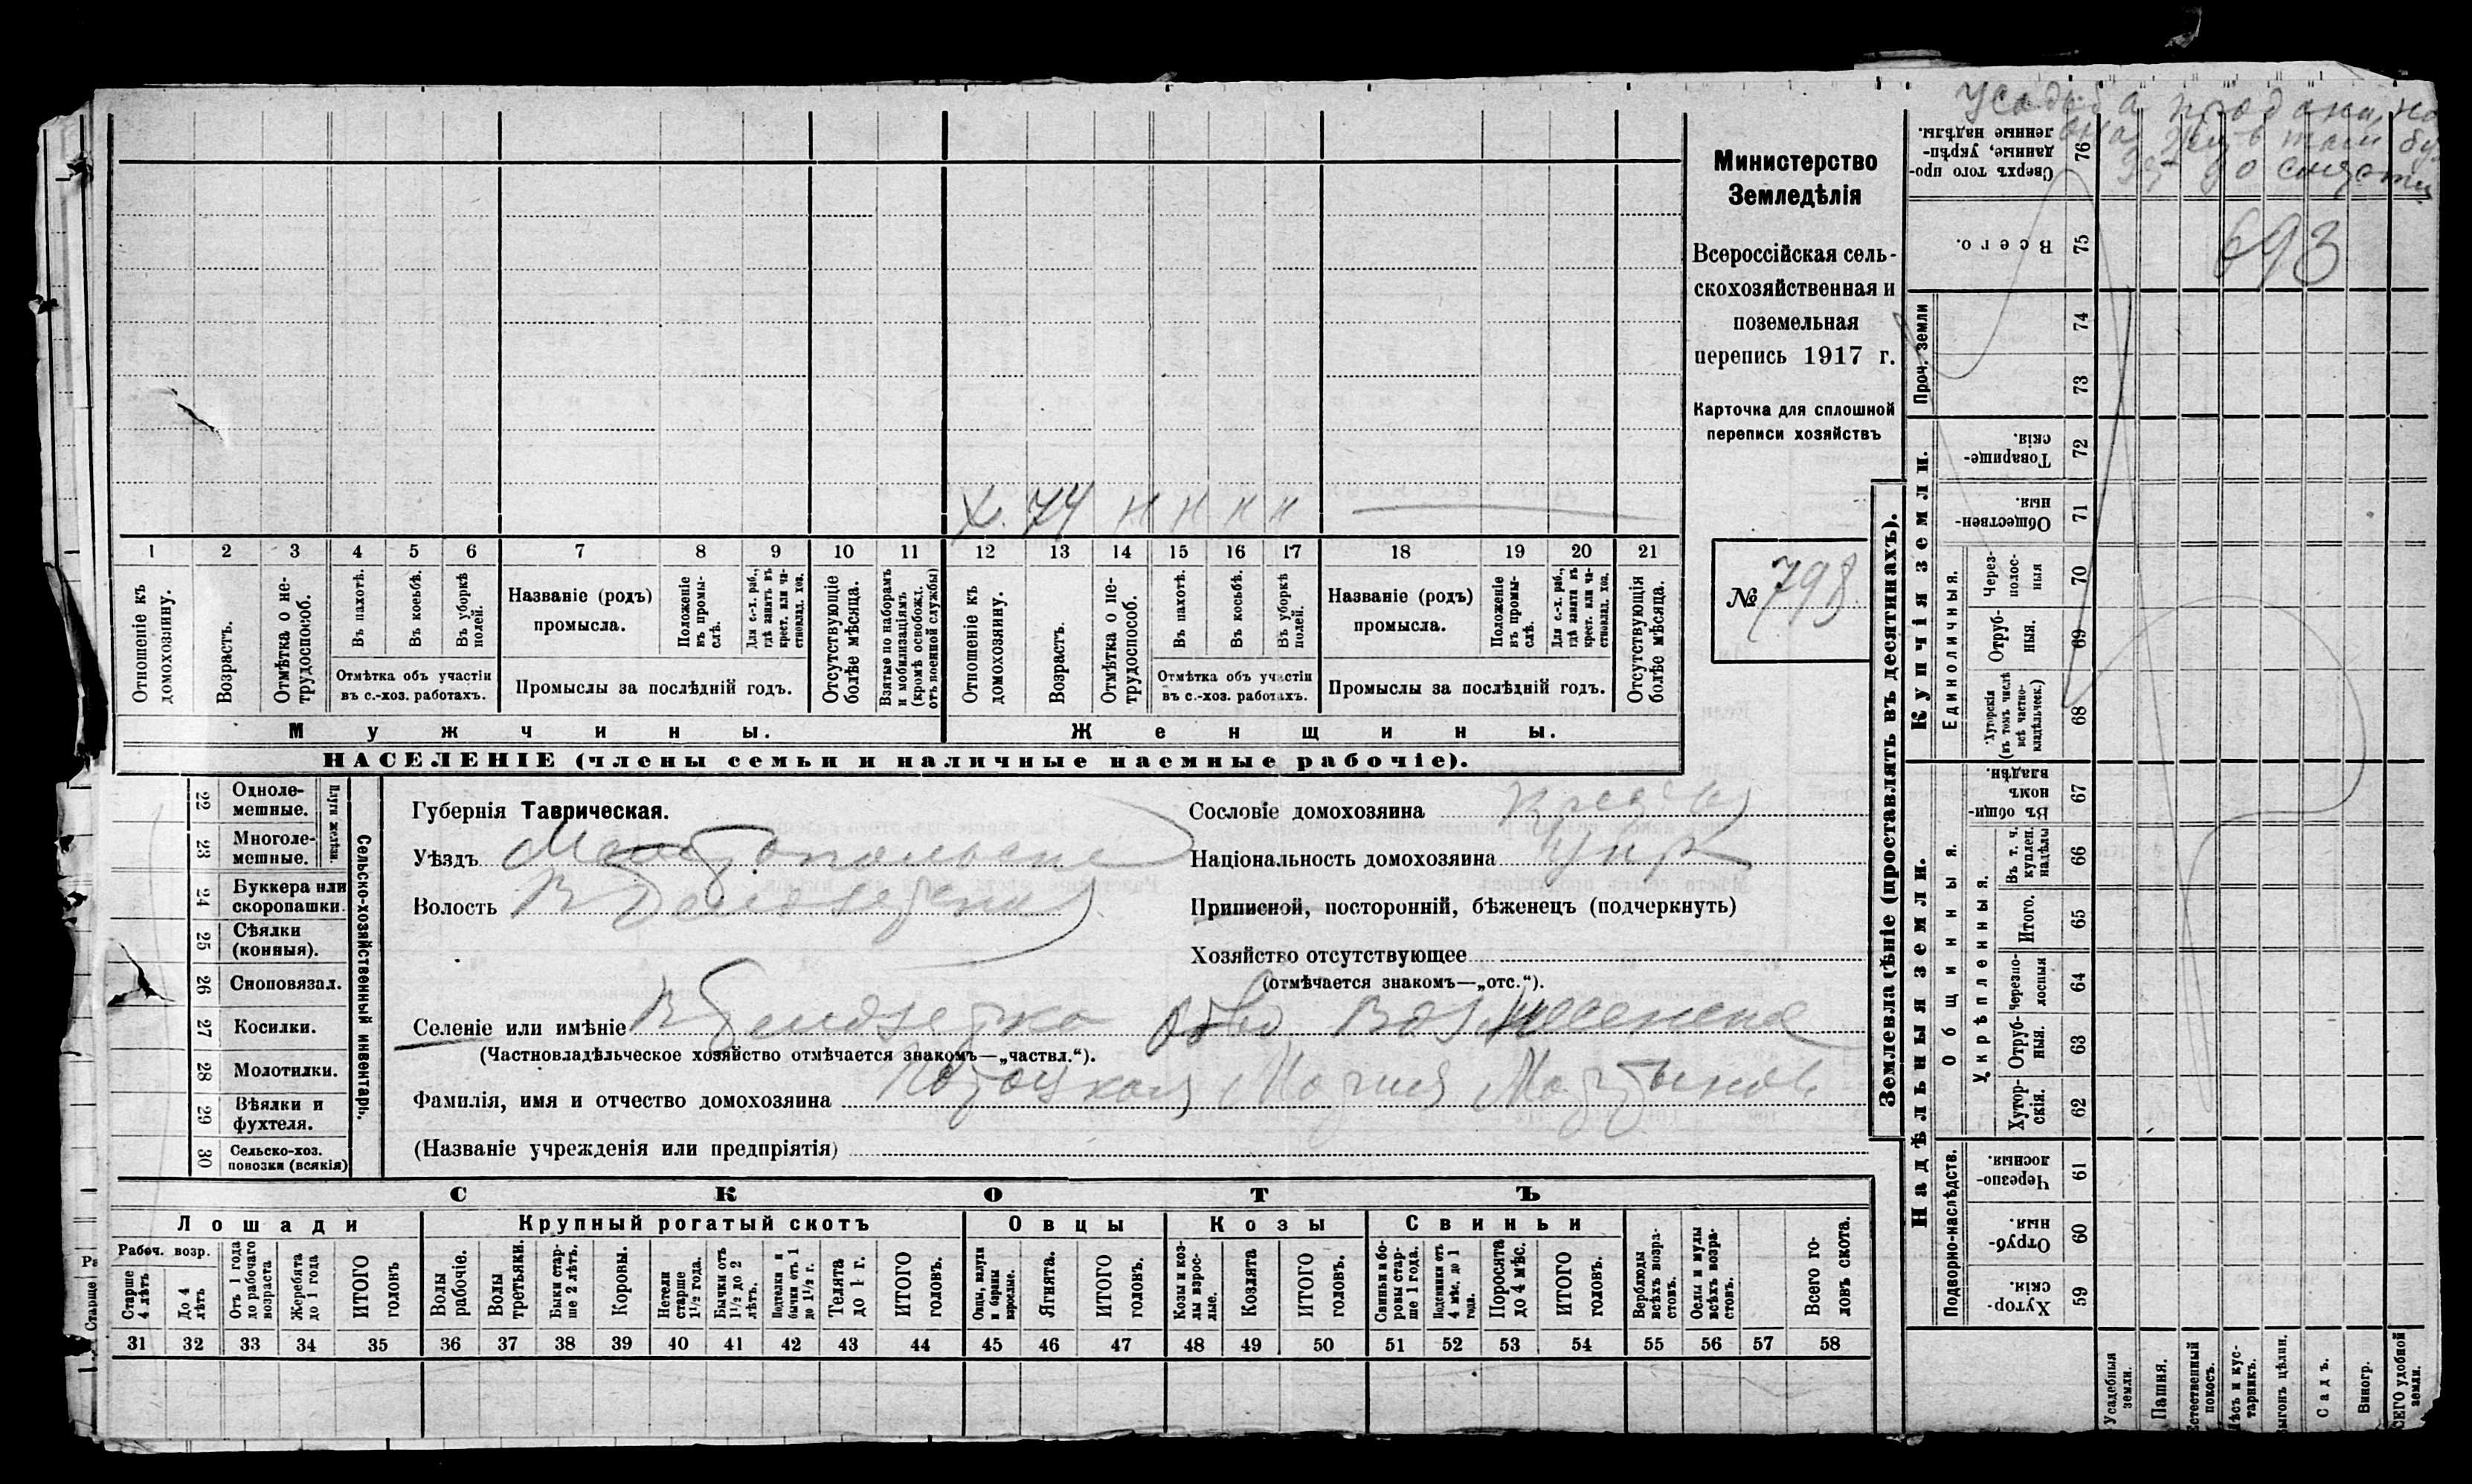 Усадьба продана, но
она живетъ тамъ бу
детъ до смерти
693
Министерство
Земледѣлія
Всероссійская сель-
скохозяйственная и
поземельная
перепись 1917 г.
Карточка для сплошной
переписи хозяйствъ
№ 798
Х. 74 н н н н
1 2 3 4 5 6 7 8 9 10 11 12 13 14 15 16 17 18 19 20 21
Отношеніе къ домохозяину.
Возрастъ.
Отмѣтка о не-трудоспособ.
Въ пахотѣ.
Въ косьбѣ.
Въ уборкѣ полей.
Отмѣтка объ участіи
въ с.-хоз. работахъ.
Названіе (родъ)
промысла.
Положеніе въ промы-слѣ.
Для с.-х. раб., гдѣ занятъ въ крест. или ча-стновлад. хоз.
Промыслы за послѣдній годъ.
Отсутствующіе болѣе мѣсяца.
Взятые по наборамъ и мобилизаціямъ (кромѣ освобожд. отъ военной службы)
Отношеніе къ домохозяину.
Возрастъ.
Отмѣтка о не-трудоспособ.
Въ пахотѣ.
Въ косьбѣ.
Въ уборкѣ полей.
Отмѣтка объ участіи
въ с.-хоз. работахъ.
Названіе (родъ)
промысла.
Положеніе въ промы-слѣ.
Для с.-х. раб., гдѣ занята въ крест. или ча-стновлад. хоз.
Промыслы за послѣдній годъ.
Отсутствующія болѣе мѣсяца.
Мужчины.
Женщины.
НАСЕЛЕНІЕ (члены семьи и наличные наемные рабочіе).
Сельско-хозяйственный инвентарь.
Плуги желѣзн.
22 Одноле-мешные.
23 Многоле-мешные.
24 Буккера или скоропашки.
25 Сѣялки (конныя).
26 Сноповязал.
27 Косилки.
28 Молотилки.
29 Вѣялки и фухтеля.
30 Сельско-хоз. повозки (всякія)
Губернія Таврическая.
Уѣздъ Мелитопольскій
Волость В Белозерская
Сословіе домохозяина
Національность домохозяина Укр
Приписной, посторонній, бѣженецъ (подчеркнуть)
Хозяйство отсутствующее
(отмѣчается знакомъ—„отс.“).
Селеніе или имѣніе В Белозерка Об-во Вознесенское
(Частновладѣльческое хозяйство отмѣчается знакомъ—„частвл.“).
Фамилія, имя и отчество домохозяина Потоцкая Марія Мартынов
(Названіе учрежденія или предпріятія)
СКОТЪ
Лошади
Крупный рогатый скотъ
Овцы
Козы
Свиньи
Рабоч. возр.
Старше 4 лѣтъ
До 4 лѣтъ
Отъ 1 года до рабочаго возраста
Жеребята до 1 года
ИТОГО головъ
Волы рабочіе.
Волы третьяки.
Быки стар-ше 2 лѣтъ.
Коровы.
Нетели старше 1½ года.
Бычки отъ 1½ до 2 лѣтъ.
Подтелки и бычки отъ 1 до 1½ г.
Телята до 1 г.
ИТОГО головъ.
Овцы, валухи и бараны взрослые.
Ягнята.
ИТОГО головъ.
Козы и коз-лы взрос-лые.
Козлята
ИТОГО головъ.
Свиньи и бо-ровы стар-ше 1 года.
Подсвинки отъ 4 мѣс. до 1 года.
Поросята до 4 мѣс.
ИТОГО головъ.
Верблюды всѣхъ возра-стовъ.
Ослы и мулы всѣхъ возра-стовъ.
Всего го-ловъ скота.
31 32 33 34 35 36 37 38 39 40 41 42 43 44 45 46 47 48 49 50 51 52 53 54 55 56 57 58
Землевладѣніе (проставлять въ десятинахъ).
Сверхъ того про-данные, укрѣп-ленные надѣлы. 76
Всего. 75
Проч. земли
74
73
Купчія земли.
Товарище-скія. 72
Обществен-ныя 71
Единоличныя.
Через-полос-ныя 70
Отруб-ныя. 69
Хуторскія (въ томъ числѣ всѣ частно-владѣльческ.) 68
Надѣльныя земли.
Общинныя.
Въ общин-номъ владѣн. 67
Укрѣпленныя.
Въ т. ч. куплен. надѣлы 66
Итого. 65
Черезпо-лосныя 64
Отруб-ныя. 63
Хутор-скія. 62
Подворно-наслѣдств.
Черезпо-лосныя. 61
Отруб-ныя. 60
Хутор-скія 59
Усадебныя земли.
Пашня.
Естественный покосъ.
Лѣсъ и кус-тарникъ.
Выгонъ цѣлин.
Садъ.
Виногр.
ВСЕГО удобной земли.